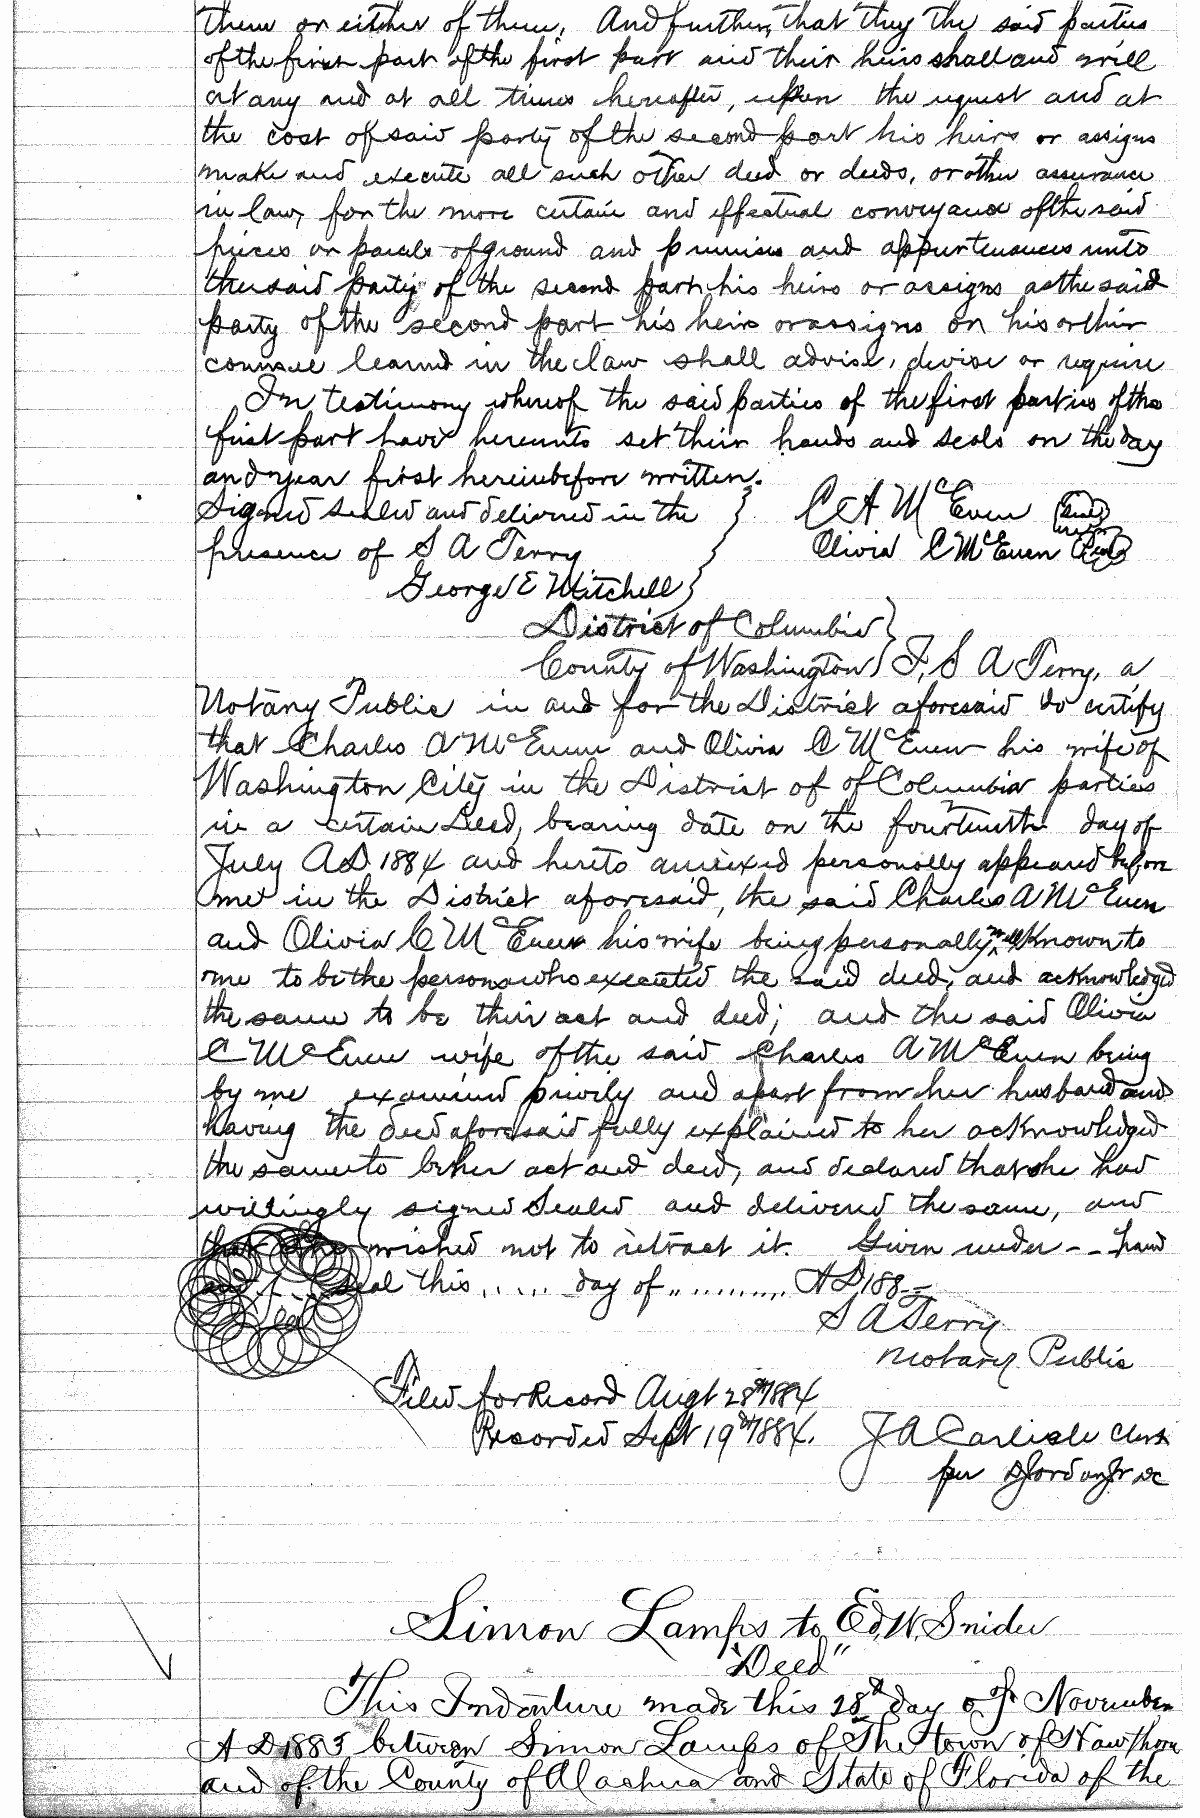 them or either of them, And further, that they the said parties
of the first part of the first part and their heirs shall and will
at any and at all times hereafter, upon the request and at
the cost of said party of the second part his heirs or assigns
make and execute all such other deed or deeds, or other assurance
in law, for the more certain and effectual conveyance of the said
pieces or parcels of ground and premises and appurtenances unto
the said party of the second part his heirs or assigns as the said
party of the second part his heirs or assigns or his or their
counsel learned in the law shall advise, devise or require
In testimony whereof the said parties of the first parties of the
first part have hereunto set their hands and seals on the day
and year first hereinbefore written.
Signed sealed and delivered in the } C A McEwen (Seal)
presence of S A Terry Olivia C McEwen (Seal)
George E Mitchell }
District of Columbia }
County of Washington } I, S A Terry, a
Notary Public in and for the District aforesaid do certify
that Charles A McEwen and Olivia C McEwen his wife of
Washington City in the District of of Columbia parties
in a certain Deed, bearing date on the fourteenth day of
July A D 1884 and hereto annexed personally appeared before
me in the District aforesaid, the said Charles A McEwen
and Olivia C McEwen his wife being personally well known to
me to be the persons who executed the said deed, and acknowledged
the same to be their act and deed; and the said Olivia
C McEwen wife of the said Charles A McEwen being
by me examined privily and apart from her husband and
having the deed aforesaid fully explained to her acknowledged
the same to be her act and deed, and declared that she had
willingly signed Sealed and delivered the same, and
that she wished not to retract it. Given under -- hand
and ... seal this ..... day of .......... A D 188-
S A Terry
Notary Public
Filed for Record Augt 28th 1884
Recorded Sept 19th 1884. J A Carlisle Clerk
per D Jordan Jr DC
Simon Lamps to Ed. W. Snider
"Deed"
This Indenture made this 28th day of of November
A D 1883 between Simon Lamps of The town of Hawthorn
and of the County of Alachua and State of Florida of the